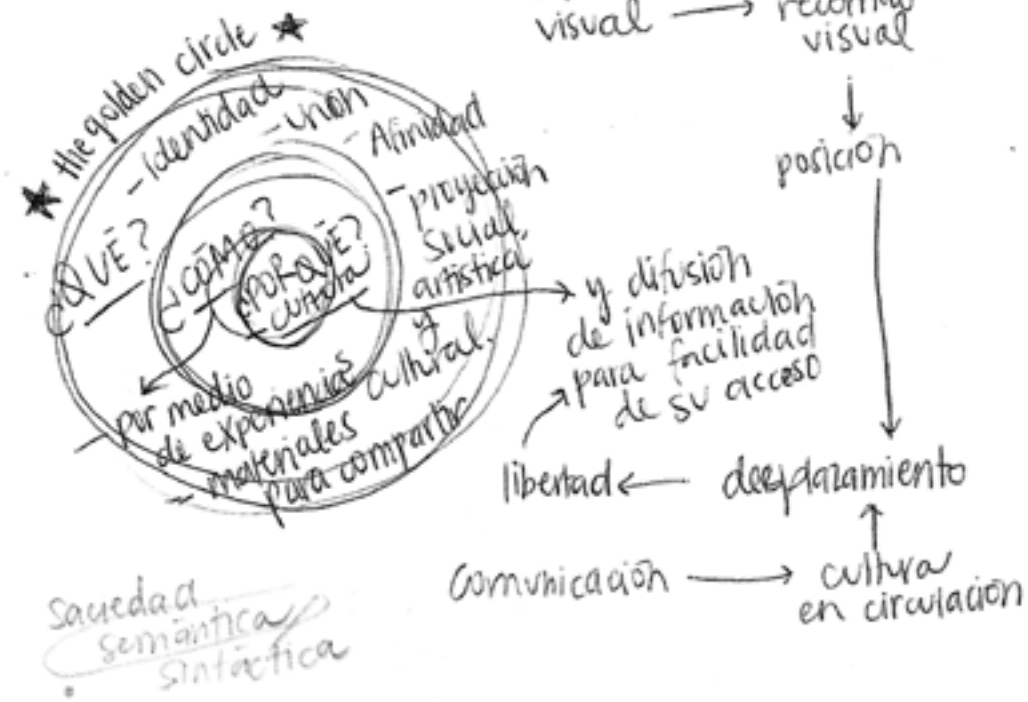 ★ the golden circle ★
- Identidad
- unon
- Afinidad
- proyección
social,
artística
y
cultural.
¿QUÉ?
¿CÓMO?
¿PORQUÉ?
cultura
- por medio
de experiencias
- materiales
para compartir
y difusión
de información
para facilidad
de su acceso
visual → 
visual
posición
desplazamiento
libertad
comunicación → cultura
en circulación
saciedad
semántica
sintáctica